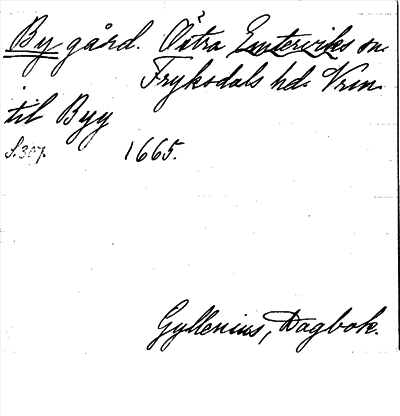 By gård. Östra Emterviks sn.
Fryksdals hd. Vrm.
til Byy
S.307. 1665.
Gyllenius, Dagbok.